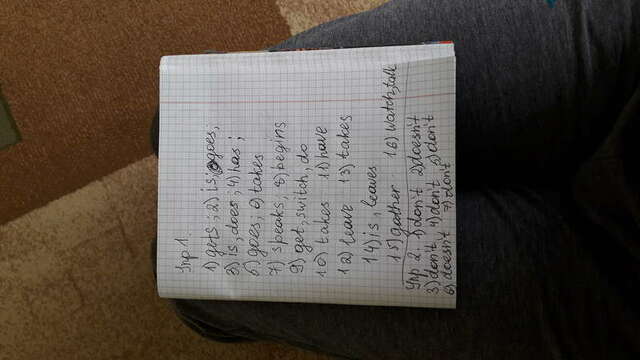 Impr 1.
1) gets; 2) is; goes;
3) is, does; 4) has;
5) goes; 6) takes
7) speaks; 8) begins
9) get, switch, do
10) takes 11) have
12) leave 13) takes
14) is, leaves
15) gather 16) watch, talk
Impr 2. 1) don't 2) doesn't
3) don't 4) don't 5) don't
6) doesn't 7) don't